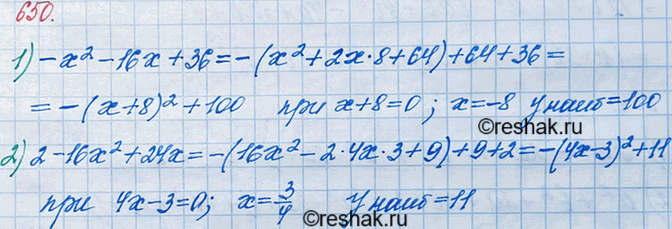 650.
1) -x² - 16x + 36 = -(x² + 2x·8 + 64) + 64 + 36 =
= -(x+8)² + 100 при x+8=0; x=-8 У наиб=100
©reshak.ru
2) 2 - 16x² + 24x = -(16x² - 2·4x·3 + 9) + 9 + 2 = -(4x-3)² + 11
при 4x-3=0; x=3/4 У наиб=11
©reshak.ru